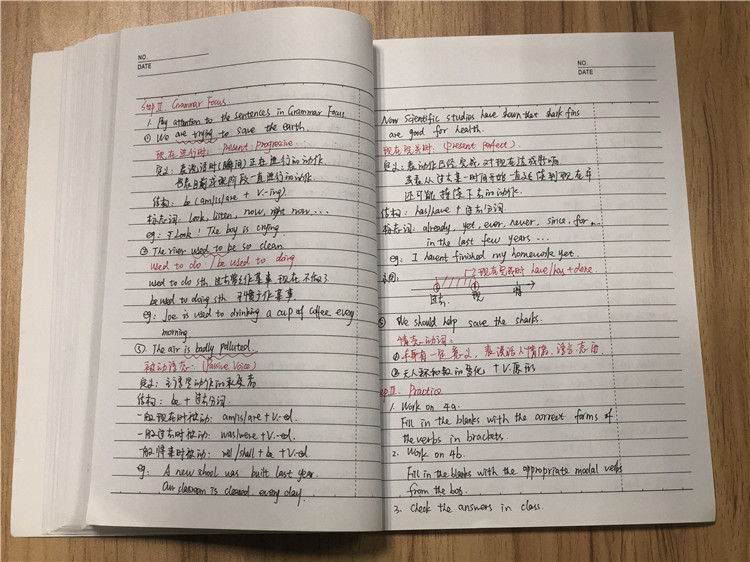 NO.
DATE
Step II Grammar Focus
1. Pay attention to the sentences in Grammar Focus
① We are trying to save the earth.
现在进行时: Present Progressive:
定义: 表说话时(瞬间)正在进行的动作
或表目前或现阶段一直进行的动作.
结构: be (am/is/are + V.-ing)
标志词: Look, listen, now, right now....
eg: Look! The boy is crying
② The river used to be so clean.
used to do / be used to doing
used to do sth 过去常常作某事, 现在不做了
be used to doing sth 习惯于作某事.
eg: Joe is used to drinking a cup of coffee every
morning
③ The air is badly polluted.
被动语态: (Passive Voice)
定义: 主语是动作的承受者
结构: be + 过去分词.
一般现在时被动: am/is/are + V-ed.
一般过去时被动: was/were + V-ed.
一般将来时被动: will/shall + be + V-ed
eg: A new shool was built last year.
Our classroom is cleaned every day.
NO.
DATE
Now scientific studies have shown that shark fins
are good for health.
现在完成时 (Present Perfect).
定义: 表动作已经完成, 对现在造成影响
或表从过去某一时间开始一直延续到现在并
还可能持续下去的动作.
结构: has/have + 过去分词
标志词: already, yet, ever, never, since, for...
in the last few years ...
eg: I havent finished my homework yet.
现在完成时 have/has + done.
过去 现 将
⑤ We should help save the sharks.
情态动词:
① 本身有一定意义, 表说话人情绪, 语气, 态度
② 无人称和数的变化 + V.原形
Step III. Practice
1. Work on 4a.
Fill in the blanks with the correct forms of
the verbs in brackets.
2. Work on 4b.
Fill in the blanks with the appropriate modal verbs
from the box.
3. Check the answers in class.